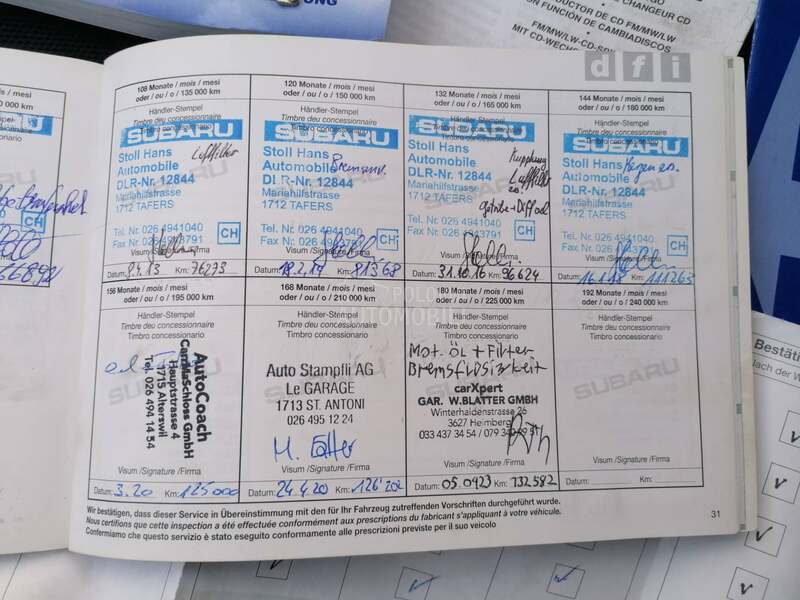 DUCTOR DE CD FM/MW/LW
ON FUNCIÓN DE CAMBIADISCOS
FM/MW/LW-CD-
MIT CD-WECH
dfi
108 Monate / mois / mesi
oder / ou / o / 135 000 km
Händler-Stempel
Timbre du concessionnaire
Timbro concessionario
SUBARU
Stoll Hans
Automobile
DLR-Nr. 12844
Mariahilfstrasse
1712 TAFERS
Luftfilter
Tel. Nr. 026 4941040
CH
Visum /Signature /Firma
Datum: 9.4.13 Km: 76273
120 Monate / mois / mesi
oder / ou / o / 150 000 km
Händler-Stempel
Timbre du concessionnaire
Timbro concessionario
SUBARU
Stoll Hans
Automobile
DLR-Nr. 12844
Mariahilfstrasse
1712 TAFERS
Tel. Nr. 026 4941040
CH
Datum: 18.2.14 Km: 81368
132 Monate / mois / mesi
oder / ou / o / 165 000 km
Händler-Stempel
Timbre du concessionnaire
SUBARU
Stoll Hans
Automobile
DLR-Nr. 12844
Mariahilfstrasse
1712 TAFERS
Kupplung
Luftfilter
Getriebe + Diff oel
Tel. Nr. 026 4941040
CH
Visum /Signature /Firma
Datum: 31.10.16 Km: 96624
144 Monate / mois / mesi
oder / ou / o / 180 000 km
Händler-Stempel
Timbre du concessionnaire
Timbro concessionario
SUBARU
Stoll Hans
Automobile
DLR-Nr. 12844
Mariahilfstrasse
1712 TAFERS
Tel. Nr. 026 4941040
CH
Datum: 16.1.18 Km: 111263
156 Monate / mois / mesi
oder / ou / o / 195 000 km
Händler-Stempel
Timbre du concessionnaire
Timbro concessionario
SUBARU
AutoCoach
CarMaSchloss GmbH
Hauptstrasse 4
1715 Alterswil
Tel. 026 494 14 54
Visum /Signature /Firma
Datum: 3.20 Km: 125000
168 Monate / mois / mesi
oder / ou / o / 210 000 km
Händler-Stempel
Timbre du concessionnaire
Timbro concessionario
SUBARU
Auto Stampfli AG
Le GARAGE
1713 ST. ANTONI
026 495 12 24
Visum /Signature /Firma
Datum: 24.4.20 Km: 126'202
180 Monate / mois / mesi
oder / ou / o / 225 000 km
Händler-Stempel
Timbre du concessionnaire
Timbro concessionario
Mot. Öl + Filter
Bremsflüssigkeit
carXpert
GAR. W.BLATTER GMBH
Winterhaldenstrasse 26
3627 Heimberg
033 437 34 54 / 079
Visum /Signature /Firma
Datum: 05.0423 Km: 132582
192 Monate / mois / mesi
oder / ou / o / 240 000 km
Händler-Stempel
Timbre du concessionnaire
Timbro concessionario
SUBARU
Visum /Signature /Firma
Datum: Km:
POLO
AUTOMOBILE
Wir bestätigen, dass dieser Service in Übereinstimmung mit den für Ihr Fahrzeug zutreffenden Vorschriften durchgeführt wurde.
Nous certifions que cette inspection a été effectuée conformément aux prescriptions du fabricant s'appliquant à votre véhicule.
Confermiamo che questo servizio è stato eseguito conformemente alle prescrizioni previste per il suo veicolo
31